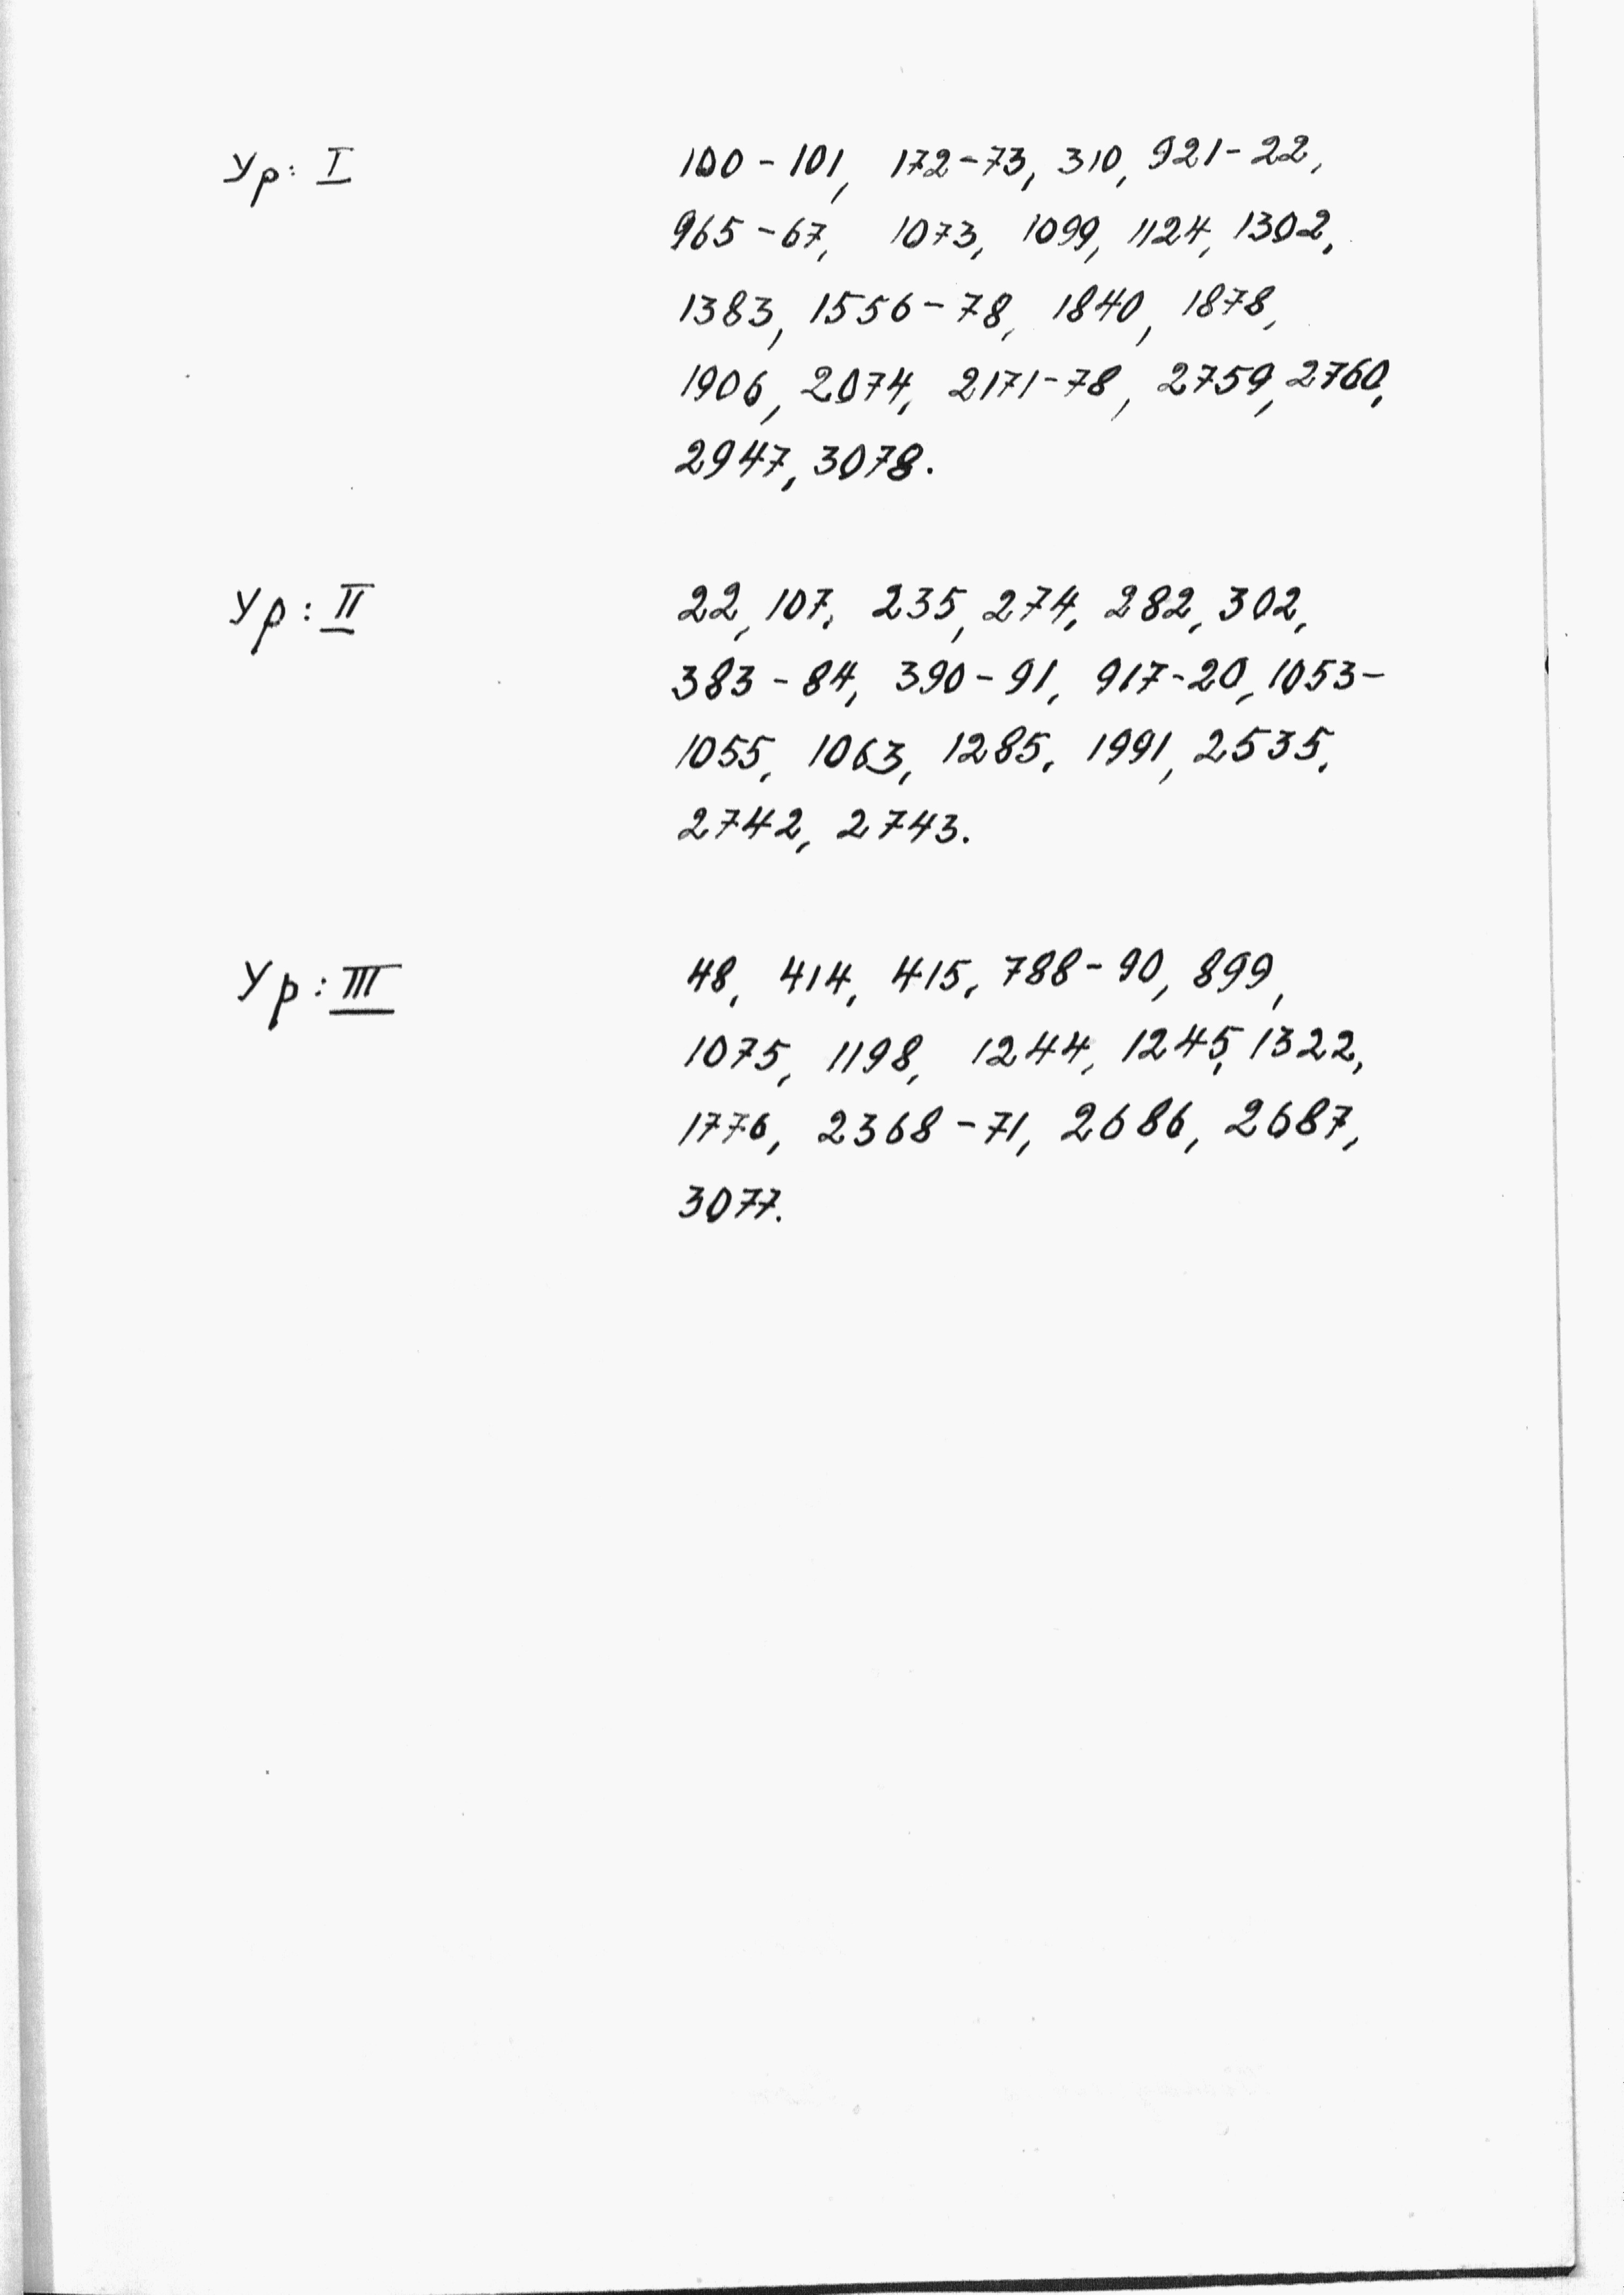 Ур: I 100-101, 172-73, 310, 921-22,
965-67, 1073, 1099, 1124, 1302,
1383, 1556-78, 1840, 1878,
1906, 2074, 2171-78, 2759, 2760,
2947, 3078.
Ур: II 22, 107, 235, 274, 282, 302,
383-84, 390-91, 917-20, 1053-
1055, 1063, 1285, 1991, 2535,
2742, 2743.
Ур: III 48, 414, 415, 788-90, 899,
1075, 1198, 1244, 1245, 1322,
1776, 2368-71, 2686, 2687,
3077.